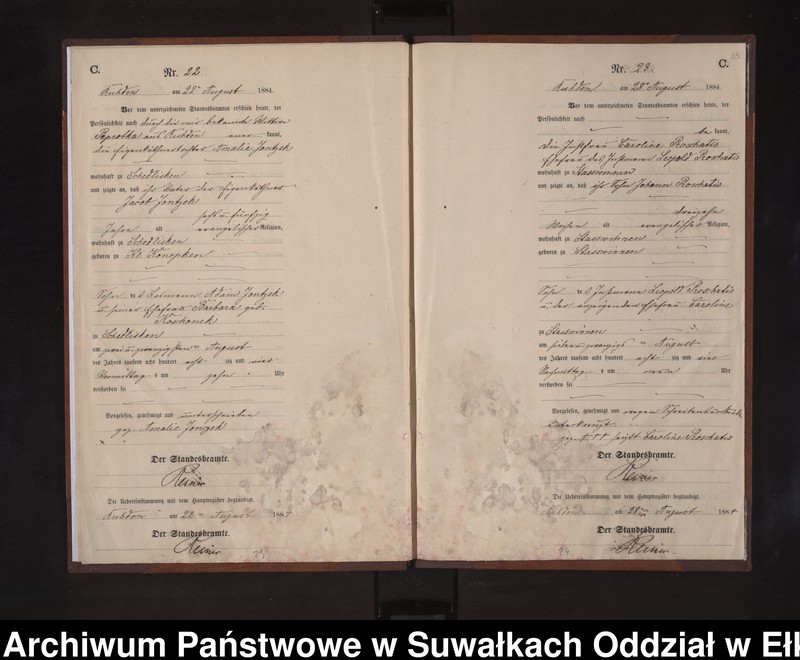 C.
Nr. 22
Kuhden am 22ten August 1884.
Vor dem unterzeichneten Standesbeamten erschien heute, der
Persönlichkeit nach durch die mir bekannte
Poprotka aus Kuhden kannt,
die Eigenkäthnertochter Amalie Jontzek
wohnhaft zu Schedlisken
und zeigte an, daß ihr Vater der Eigenkäthner
Jacob Jontzek
sechs u. fünfzig
Jahre alt evangelischer Religion,
wohnhaft zu Schedlisken
geboren zu Kl. Konopken
Sohn des Losmann Adam Jontzek
u. seiner Ehefrau Barbara geb.
zu Schedlisken
am zwei u. zwanzigsten August
des Jahres tausend acht hundert acht zig und vier
Vormittag s um zehn Uhr
verstorben sei
Vorgelesen, genehmigt und unterschrieben
gez. Amalie Jontzek
Der Standesbeamte.
Reiner
Die Uebereinstimmung mit dem Hauptregister beglaubigt.
Kuhden am 22ten August 1884
Der Standesbeamte.
Reiner
23
C.
Nr. 23.
Kuhden am 28ten August 1884.
Vor dem unterzeichneten Standesbeamten erschien heute, der
Persönlichkeit nach
be kannt,
die Instfrau Caroline Roschatis
Ehefrau des Instmann Leopold Roschatis
wohnhaft zu Staswinnen
und zeigte an, daß ihr Sohn Johann Roschatis
dreizehn
Wochen alt evangelischer Religion,
wohnhaft zu Staswinnen
geboren zu Staswinnen
Sohn des Instmann Leopold Roschatis
u. der anzeigenden Ehefrau Caroline
zu Staswinnen
am sieben u. zwanzigsten August
des Jahres tausend acht hundert acht zig und vier
Nachmittag s um neun Uhr
verstorben sei
Vorgelesen, genehmigt und wegen Schreibensunkunde
unterkreuzt
gez. ††† heißt Caroline Roschatis
Der Standesbeamte.
Reiner
Die Uebereinstimmung mit dem Hauptregister beglaubigt.
Kuhden am 28ten August 1884
Der Standesbeamte.
Reiner
24
Archiwum Państwowe w Suwałkach Oddział w Ełk